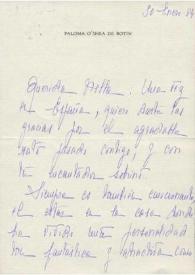 30-Enero 84
PALOMA O'SHEA DE BOTÍN
Querida: Una vez
en España, quiero darte las
gracias por el agradable
rato pasado contigo, y con
tu encantador
Siempre es también emocionante
el estar en la casa donde
ha vivido una personalidad
tan fantástica y